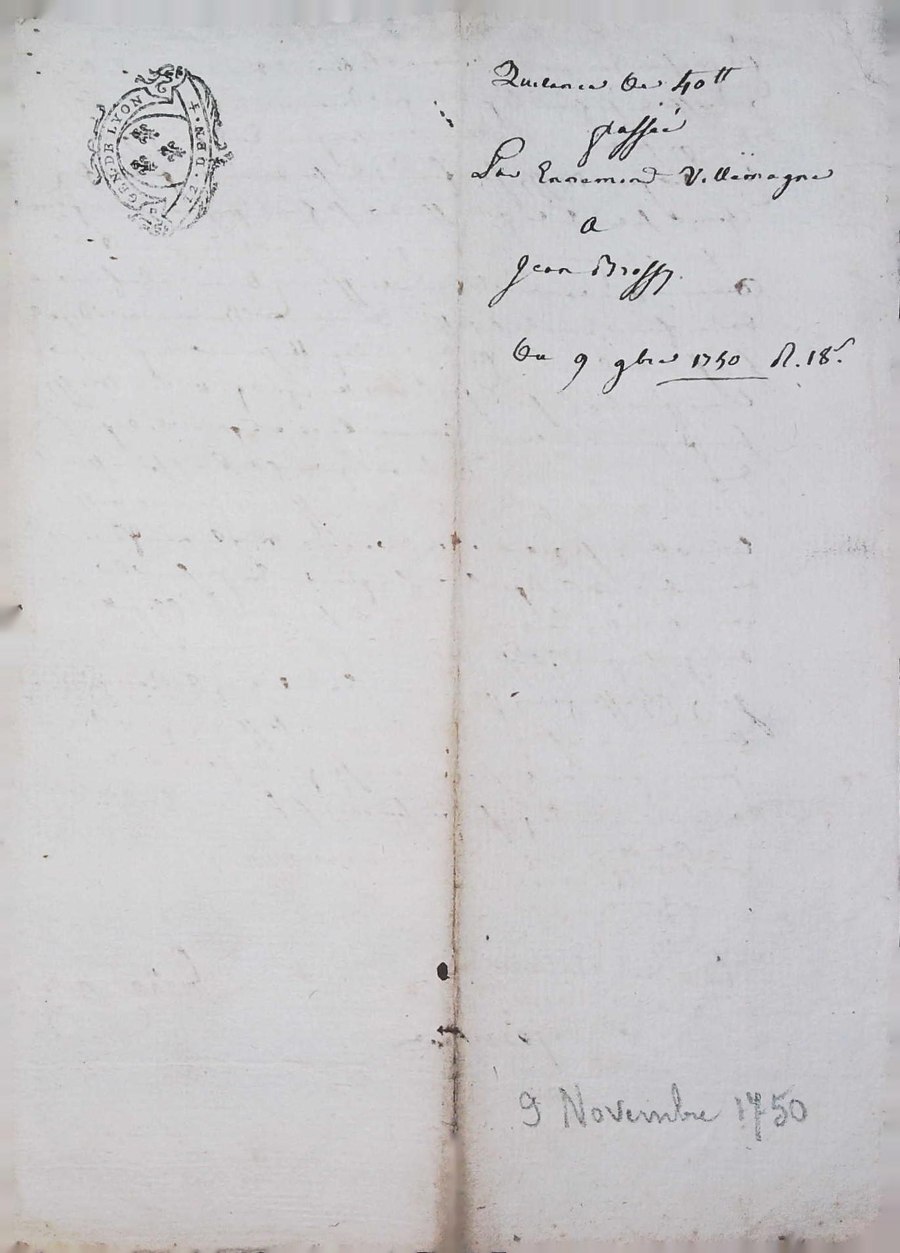 GEN. DE LYON
Quittance de 40tt
passée
Par Ennemond Villemagne
a
Jean Brossy.
Du 9 9bre 1750 R. 18s
9 Novembre 1750